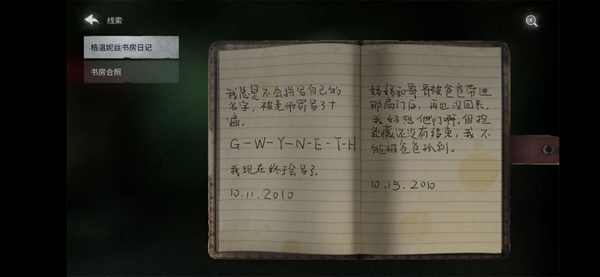 线索
格温妮丝书房日记
书房合照
我总是不会拼写自己的
名字，被老师罚写了十
遍。
G-W-Y-N-E-T-H
我现在终于会写了。
10.11.2010
妈妈和哥哥被爸爸带进
那扇门后，再也没回来。
我好想他们啊。但捉
迷藏还没有结束，我不
能被爸爸捡到。
10.15.2010